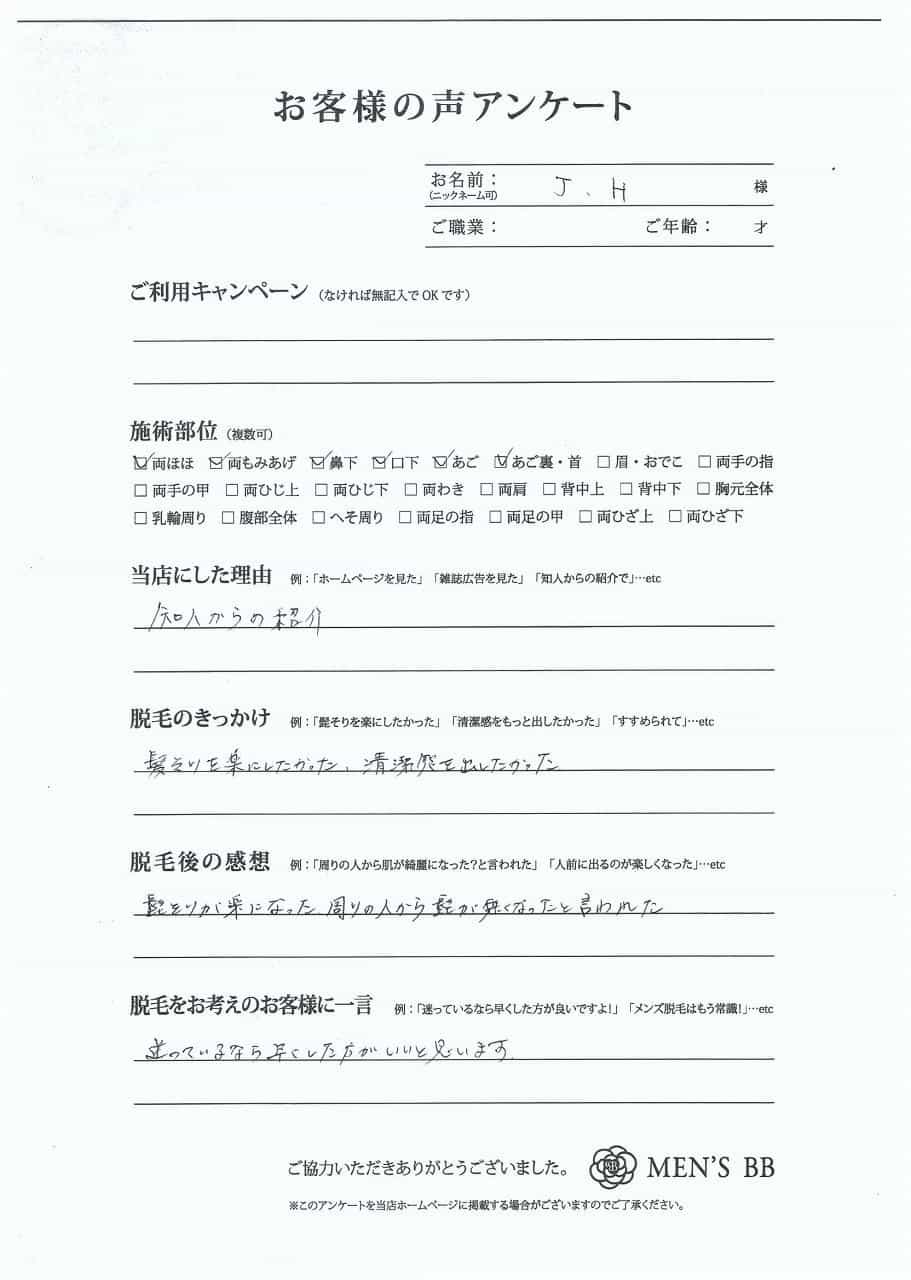 お客様の声アンケート
お名前： J. H 様
(ニックネーム可)
ご職業： ご年齢： 才
ご利用キャンペーン（なければ無記入でOKです）
施術部位（複数可）
☑両ほほ ☑両もみあげ ☑鼻下 ☑口下 ☑あご ☑あご裏・首 □眉・おでこ □両手の指
□両手の甲 □両ひじ上 □両ひじ下 □両わき □両肩 □背中上 □背中下 □胸元全体
□乳輪周り □腹部全体 □へそ周り □両足の指 □両足の甲 □両ひざ上 □両ひざ下
当店にした理由 例：「ホームページを見た」「雑誌広告を見た」「知人からの紹介で」…etc
知人からの紹介
脱毛のきっかけ 例：「髭そりを楽にしたかった」「清潔感をもっと出したかった」「すすめられて」…etc
髭そりを楽にしたかった、清潔感を出したかった
脱毛後の感想 例：「周りの人から肌が綺麗になった？と言われた」「人前に出るのが楽しくなった」…etc
髭そりが楽になった 周りの人から髭が無くなったと言われた
脱毛をお考えのお客様に一言 例：「迷っているなら早くした方が良いですよ！」「メンズ脱毛はもう常識！」…etc
迷っているなら早くした方がいいと思います
ご協力いただきありがとうございました。 MEN'S BB
※このアンケートを当店ホームページに掲載する場合がございますのでご了承ください。